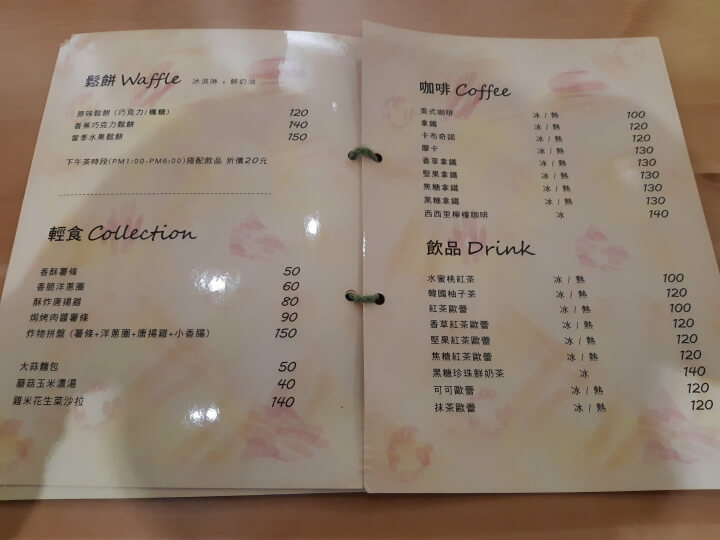 鬆餅 Waffle 冰淇淋 + 鮮奶油
原味鬆餅 (巧克力/楓糖) 120
香蕉巧克力鬆餅 140
當季水果鬆餅 150
下午茶時段(PM1:00-PM6:00)搭配飲品 折價20元
輕食 Collection
香酥薯條 50
香脆洋蔥圈 60
酥炸唐揚雞 80
焗烤肉醬薯條 90
炸物拼盤 (薯條+洋蔥圈+唐揚雞+小香腸) 150
大蒜麵包 50
蘑菇玉米濃湯 40
雞米花生菜沙拉 140
咖啡 Coffee
美式咖啡 冰 / 熱 100
拿鐵 冰 / 熱 120
卡布奇諾 冰 / 熱 120
摩卡 冰 / 熱 130
香草拿鐵 冰 / 熱 130
堅果拿鐵 冰 / 熱 130
焦糖拿鐵 冰 / 熱 130
黑糖拿鐵 冰 / 熱 130
西西里檸檬咖啡 冰 140
飲品 Drink
水蜜桃紅茶 冰 / 熱 100
韓國柚子茶 冰 / 熱 120
紅茶歐蕾 冰 / 熱 100
香草紅茶歐蕾 冰 / 熱 120
堅果紅茶歐蕾 冰 / 熱 120
焦糖紅茶歐蕾 冰 / 熱 120
黑糖珍珠鮮奶茶 冰 140
可可歐蕾 冰 / 熱 120
抹茶歐蕾 冰 / 熱 120